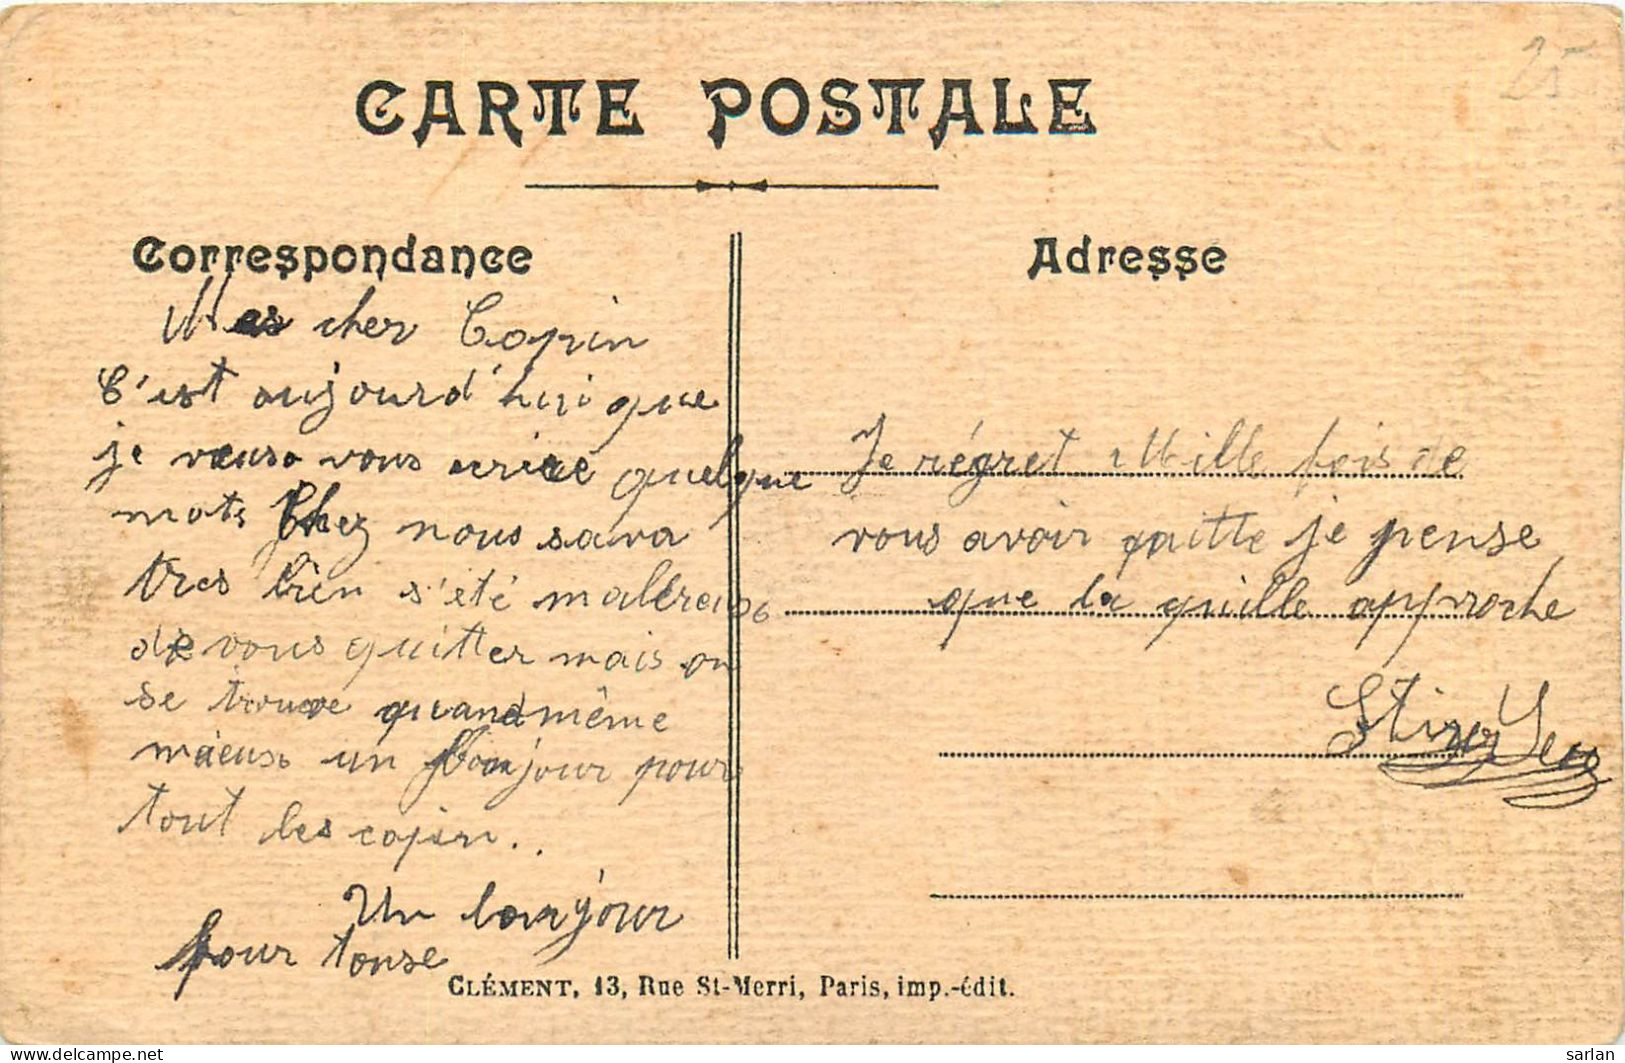 25
CARTE POSTALE
Correspondance
Adresse
Mes cher Copin
C'est aujourd'hui que
je veuse vous ecrire quelque
mots Chez nous sava
tres bien s'été malereuse
de vous quitter mais on
se trouve quand même
maieuse un Bonjour pour
tout les copin..
Un bonjour
pour touse
Je régret Mille fois de
vous avoir quitte je pense
que la quille approche
CLÉMENT, 13, Rue St-Merri, Paris, imp.-édit.
https://www.delcampe.net
sarlan